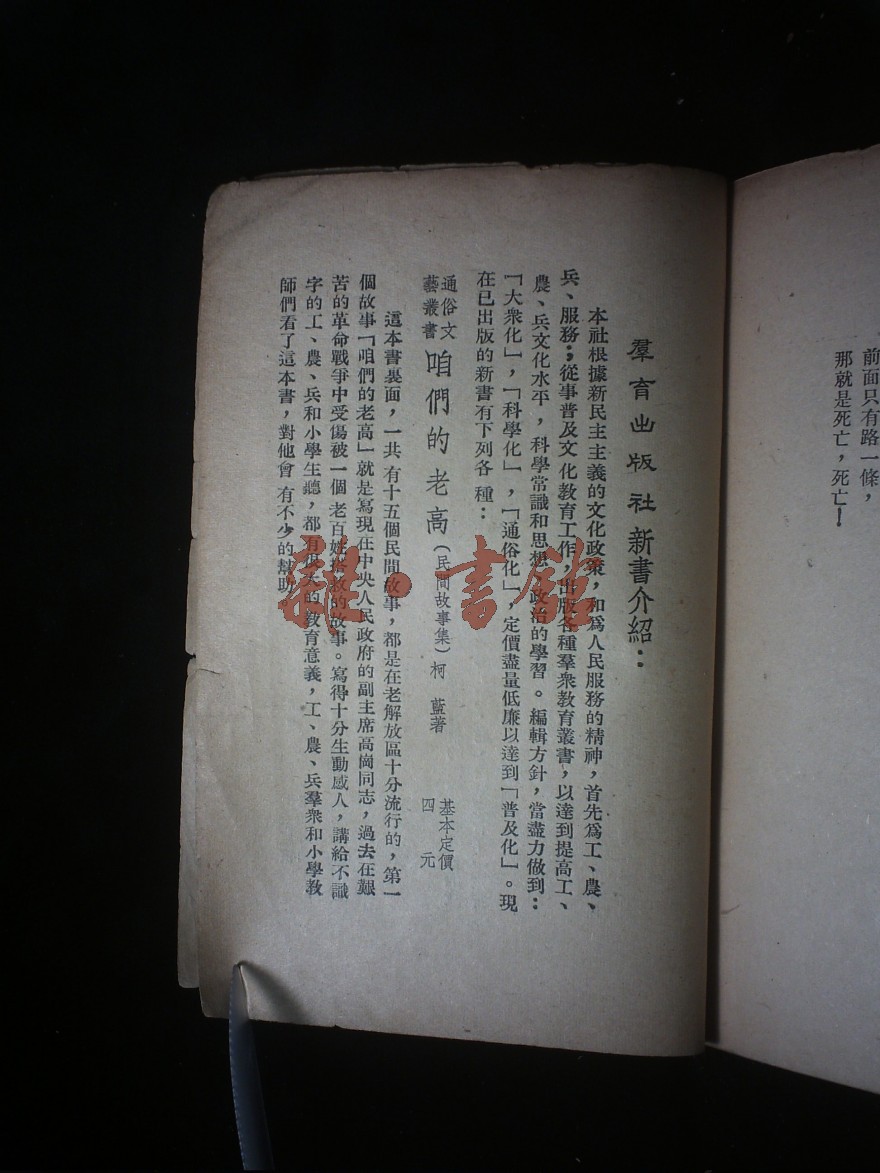 前面只有路一條，
那就是死亡，死亡！
羣育出版社新書介紹：
本社根據新民主主義的文化政策，和爲人民服務的精神，首先爲工、農、
兵、服務；從事普及文化教育工作，出版各種羣衆教育叢書，以達到提高工、
農、兵文化水平，科學常識和思想、政治的學習。編輯方針，當盡力做到：
「大衆化」，「科學化」，「通俗化」，定價盡量低廉以達到「普及化」。現
在已出版的新書有下列各種：
通俗文藝叢書 咱們的老高（民間故事集）柯藍著 基本定價四元
這本書裏面，一共有十五個民間故事，都是在老解放區十分流行的，第一
個故事「咱們的老高」就是寫現在中央人民政府的副主席高崗同志，過去在艱
苦的革命戰爭中受傷被一個老百姓搭救的故事。寫得十分生動感人，講給不識
字的工、農、兵和小學生聽，都有很大的教育意義，工、農、兵羣衆和小學教
師們看了這本書，對他會有不少的幫助
雜·書館